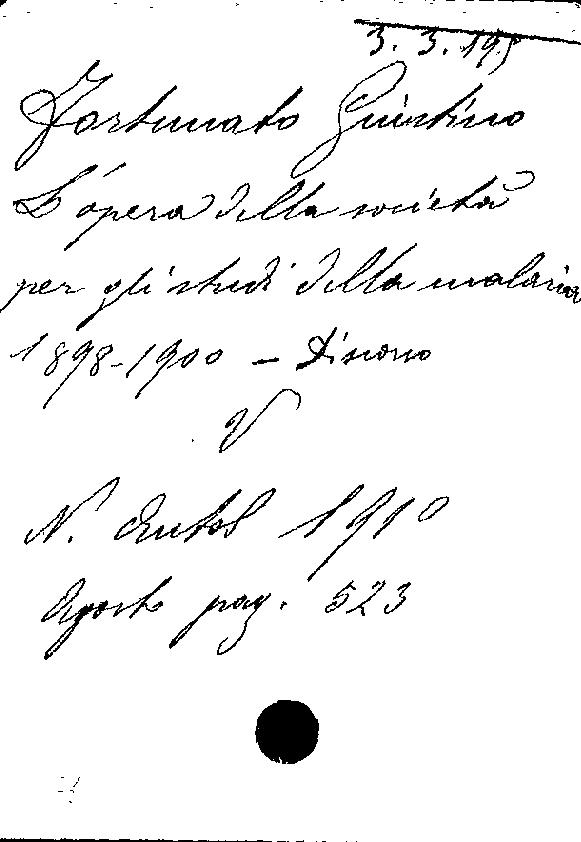 3. 3. 195
Fortunato Giustino
L'opera della società
per gli studi della malaria
1898-1900 – Discorso
V
N. Antol 1910
Agosto pag. 523